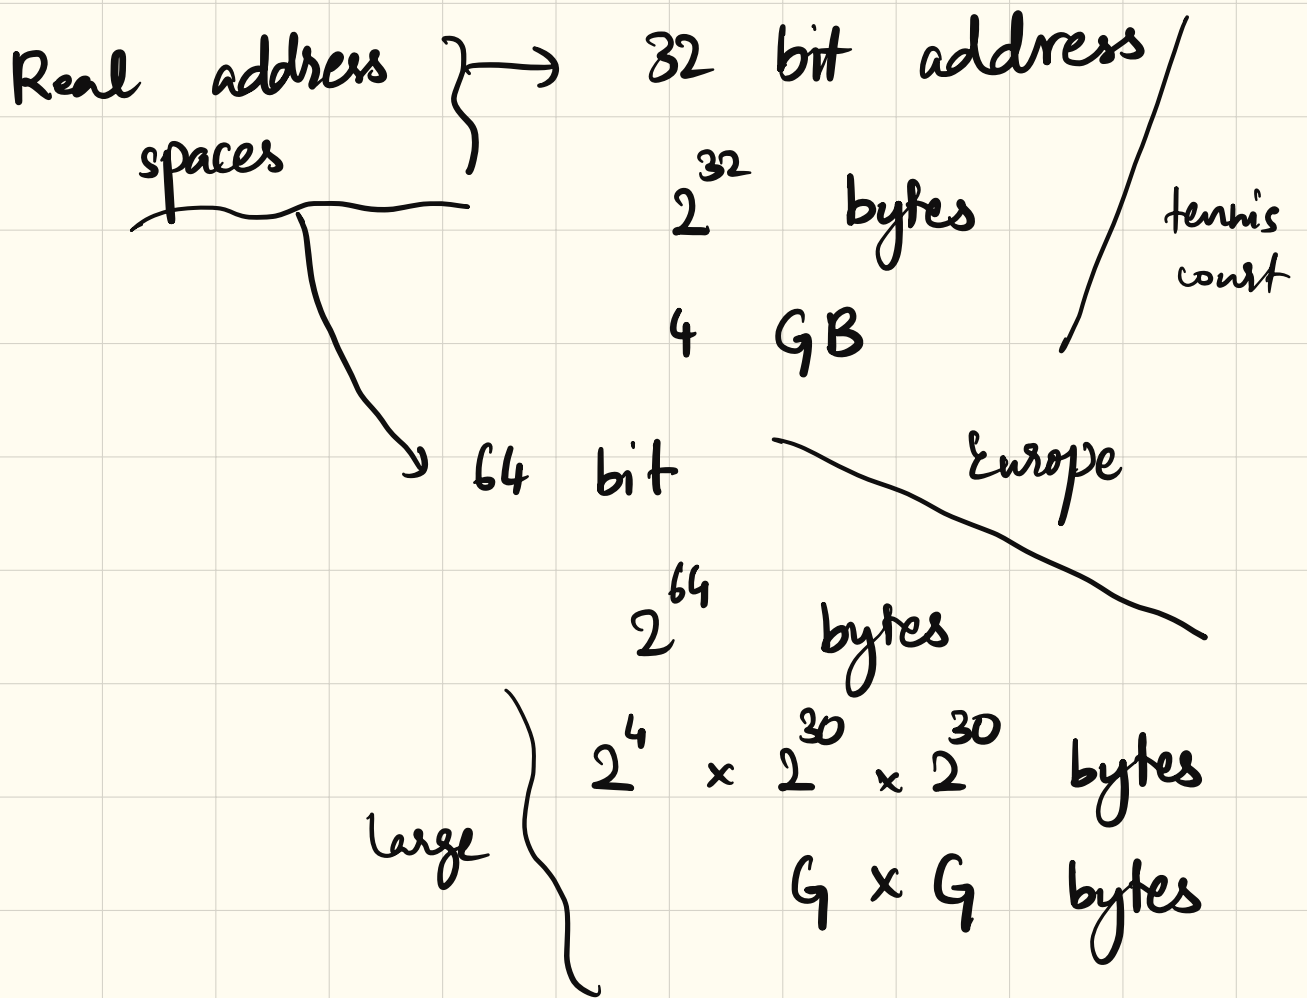 Real address
spaces
32 bit address
2^32 bytes
tennis
court
4 GB
64 bit
Europe
2^64 bytes
2^4 x 2^30 x 2^30 bytes
large
G x G bytes